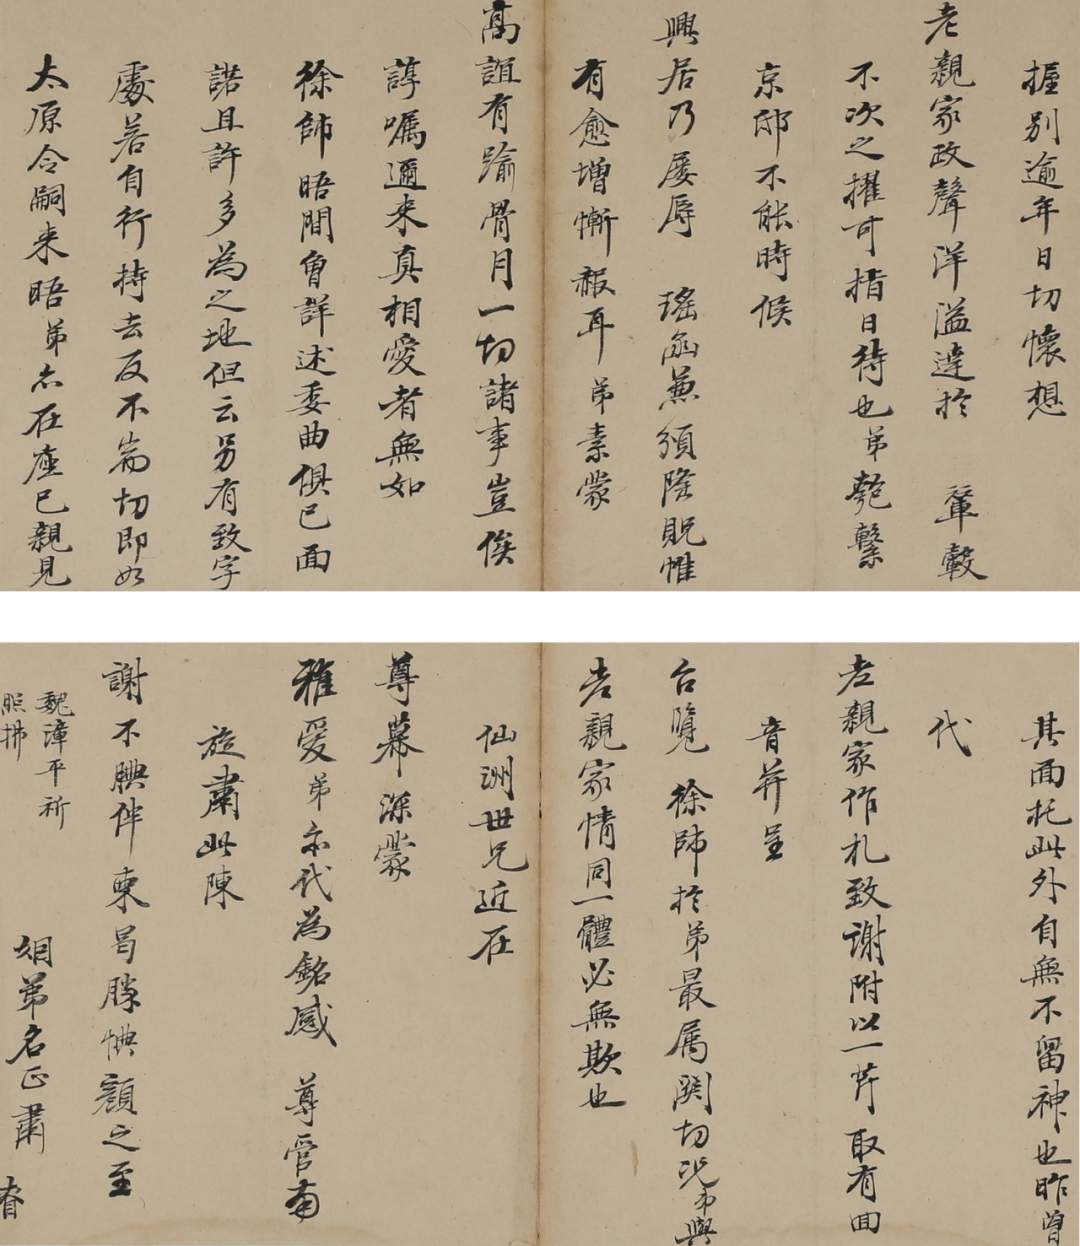 握別逾年日切懷想
老親家政聲洋溢達於 輦轂
不次之擢可指日待也弟匏繫
京邸不能時候
興居乃屡辱 瑤函兼須隆貺惟
有愈增慚赧耳弟素蒙
高誼有踰骨月一切諸事豈俟
諄囑邇来真相愛者無如
徐師晤間曾詳述委曲俱已面
諾且許多為之地但云另有致字
處若自行持去反不耑切即如
太原令嗣来晤弟亦在座已親見
其面托此外自無不留神也昨曾
代
老親家作札致謝附以一芹取有回
音并呈
台覽 徐師於弟最属関切况弟與
老親家情同一體必無欺也
仙洲世兄近在
尊幕深蒙
雅愛弟亦代為銘感 尊管南
旋肅此陳
謝不腆伴柬曷勝愧顏之至
姻弟名正肅
魏漳平祈
照拂